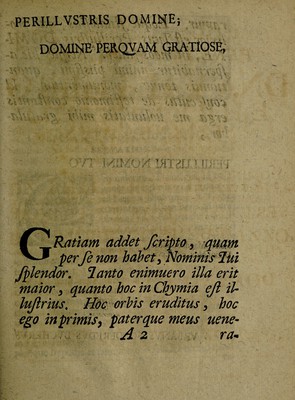 PERILLVSTRIS DOMINE;
DOMINE PERQVAM GRATIOSE,
GRatiam addet ſcripto, quam
per ſe non habet, Nominis Tui
ſplendor. Tanto enimuero illa erit
maior, quanto hoc in Chymia eſt il-
luſtrius. Hoc orbis eruditus, hoc
ego inprimis, paterque meus uene-
A 2 ra-